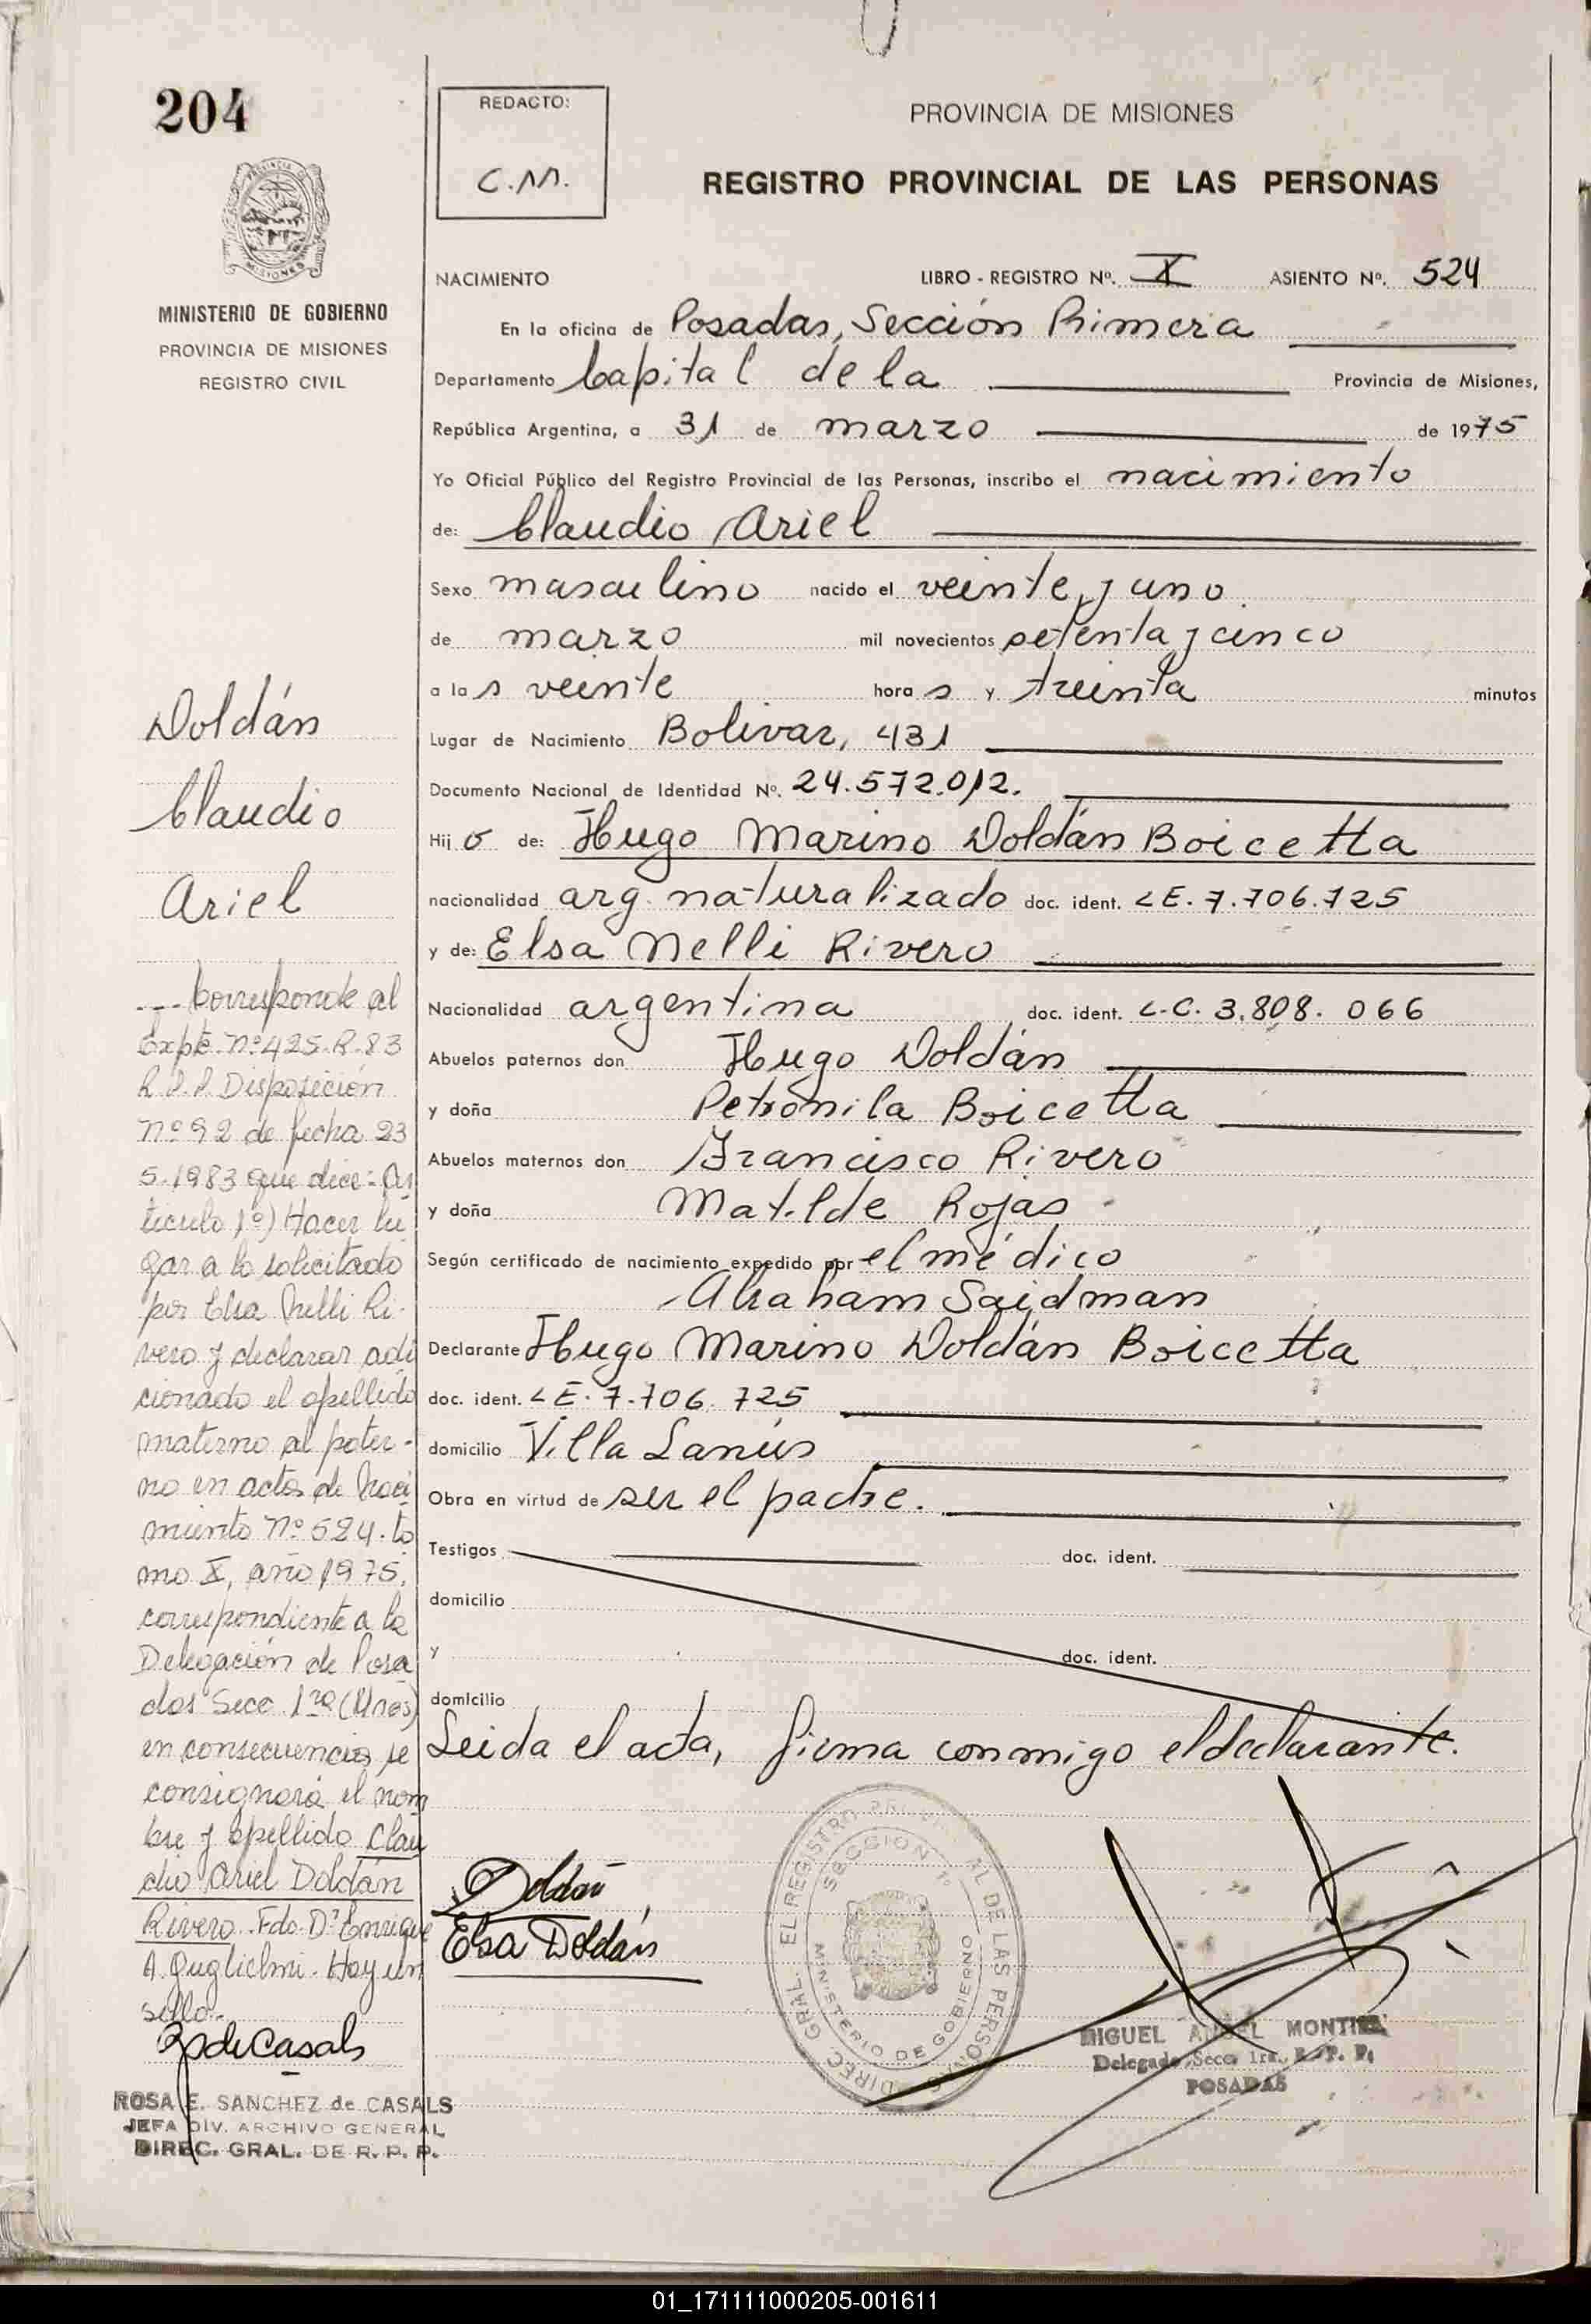 204
MINISTERIO DE GOBIERNO
PROVINCIA DE MISIONES
REGISTRO CIVIL
REDACTO:
C.M.
PROVINCIA DE MISIONES
REGISTRO PROVINCIAL DE LAS PERSONAS
NACIMIENTO LIBRO - REGISTRO Nº. X ASIENTO Nº. 524
En la oficina de Posadas, Sección Primera
Departamento Capital de la Provincia de Misiones,
República Argentina, a 31 de marzo de 1975
Yo Oficial Público del Registro Provincial de las Personas, inscribo el nacimiento
de: Claudio Ariel
Sexo masculino nacido el veinte y uno
de marzo mil novecientos setenta y cinco
a las veinte horas y treinta minutos
Lugar de Nacimiento Bolivar, 431
Documento Nacional de Identidad Nº. 24.572.012.
Hijo de: Hugo Marino Doldán Boicetta
nacionalidad arg. naturalizado doc. ident. LE. 7.706.725
y de: Elsa Nelli Rivero
Nacionalidad argentina doc. ident. L.C. 3.808.066
Abuelos paternos don Hugo Doldán
y doña Petronila Boicetta
Abuelos maternos don Francisco Rivero
y doña Matilde Rojas
Según certificado de nacimiento expedido por el médico
Abraham Saidman
Declarante Hugo Marino Doldán Boicetta
doc. ident. LE. 7.706.725
domicilio Villa Lanús
Obra en virtud de ser el padre.
Testigos doc. ident.
domicilio
y doc. ident.
domicilio
Leida el acta, firma conmigo el declarante.
Doldán
Elsa Doldán
DIREC. GRAL. EL REGISTRO PROVINCIAL DE LAS PERSONAS
SECCION 1º
MINISTERIO DE GOBIERNO
MIGUEL ANGEL MONTIEL
Delegado Secc. 1ra. R. P. P.
POSADAS
Doldán
Claudio
Ariel
--- Corresponde al
Expte. Nº 425-R-83
R.P.P. Disposición
Nº 92 de fecha 23
5-1983 que dice: Ar
tículo 1º) Hacer lu
gar a lo solicitado
por Elsa Nelli Ri-
vero y declarar adi
cionado el apellido
materno al pater-
no en acta de Naci
miento Nº 524. to
mo X, año 1975,
correspondiente a la
Delegación de Posa
das Secc. 1ra
en consecuencia se
consignará el nom
bre y apellido Clau
dio Ariel Doldán
Rivero. Fdo. Dº Enrique
A. Guglielmi. Hay un
sello.
R de Casals
ROSA E. SANCHEZ de CASALS
JEFA DIV. ARCHIVO GENERAL
DIREC. GRAL. DE R. P. P.
01_171111000205-001611